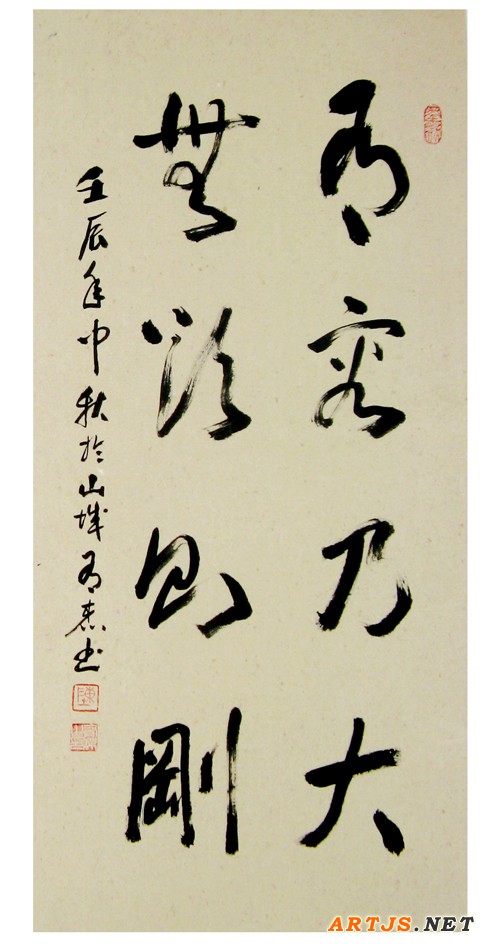 有容乃大
無欲則剛
壬辰年中秋於山城有志书
ARTJS.NET